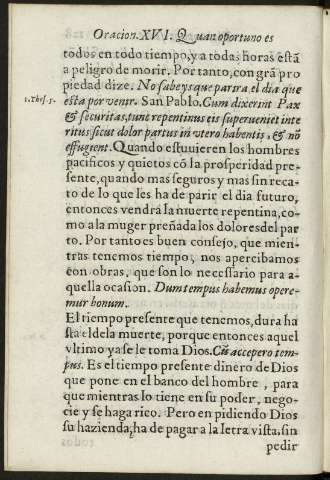 Oracion. XVI. Quan oportuno es
todos en todo tiempo, y a todas horas estã
a peligro de morir. Por tanto, con grã pro
piedad dize. No sabeys que parira el dia que
1. Thes. 5. esta por venir. San Pablo. Cum dixerint Pax
& securitas, tunc repentinus eis superueniet inte
ritus sicut dolor partus in vtero habentis, & nõ
effugient. Quando estuuieren los hombres
pacificos y quietos cõ la prosperidad pre-
sente, quando mas seguros y mas sin reca-
to de lo que les ha de parir el dia futuro,
entonces vendrà la muerte repentina, co-
mo a la muger preñada los dolores del par
to. Por tanto es buen consejo, que mien-
tras tenemos tiempo, nos apercibamos
con obras, que son lo necessario para a-
quella ocasion. Dum tempus habemus opere-
mur bonum.
El tiempo presente que tenemos, dura ha
sta el dela muerte, porque entonces aquel
vltimo ya se le toma Dios. Cũ accepero tem-
pus. Es el tiempo presente dinero de Dios
que pone en el banco del hombre, para
que mientras lo tiene en su poder, nego-
cie y se haga rico. Pero en pidiendo Dios
su hazienda, ha de pagar a la letra vista, sin
pedir